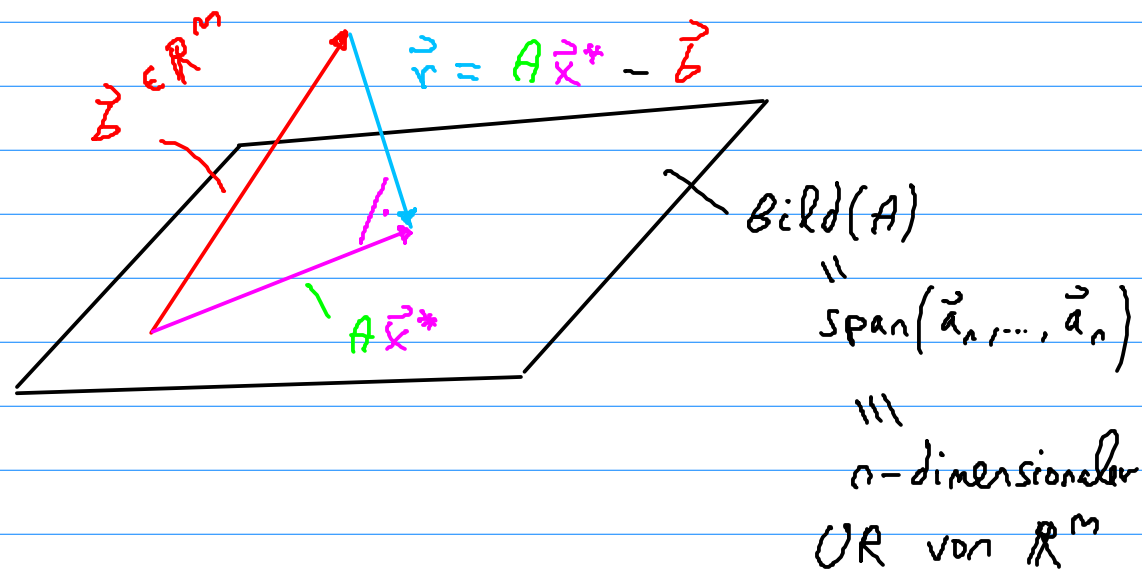 b⃗ ∈ ℝᵐ
r⃗ = A x⃗* − b⃗
A x⃗*
Bild(A)
=
span(a⃗ₙ,..., a⃗ₙ)
≡
n-dimensionaler
UR von ℝᵐ